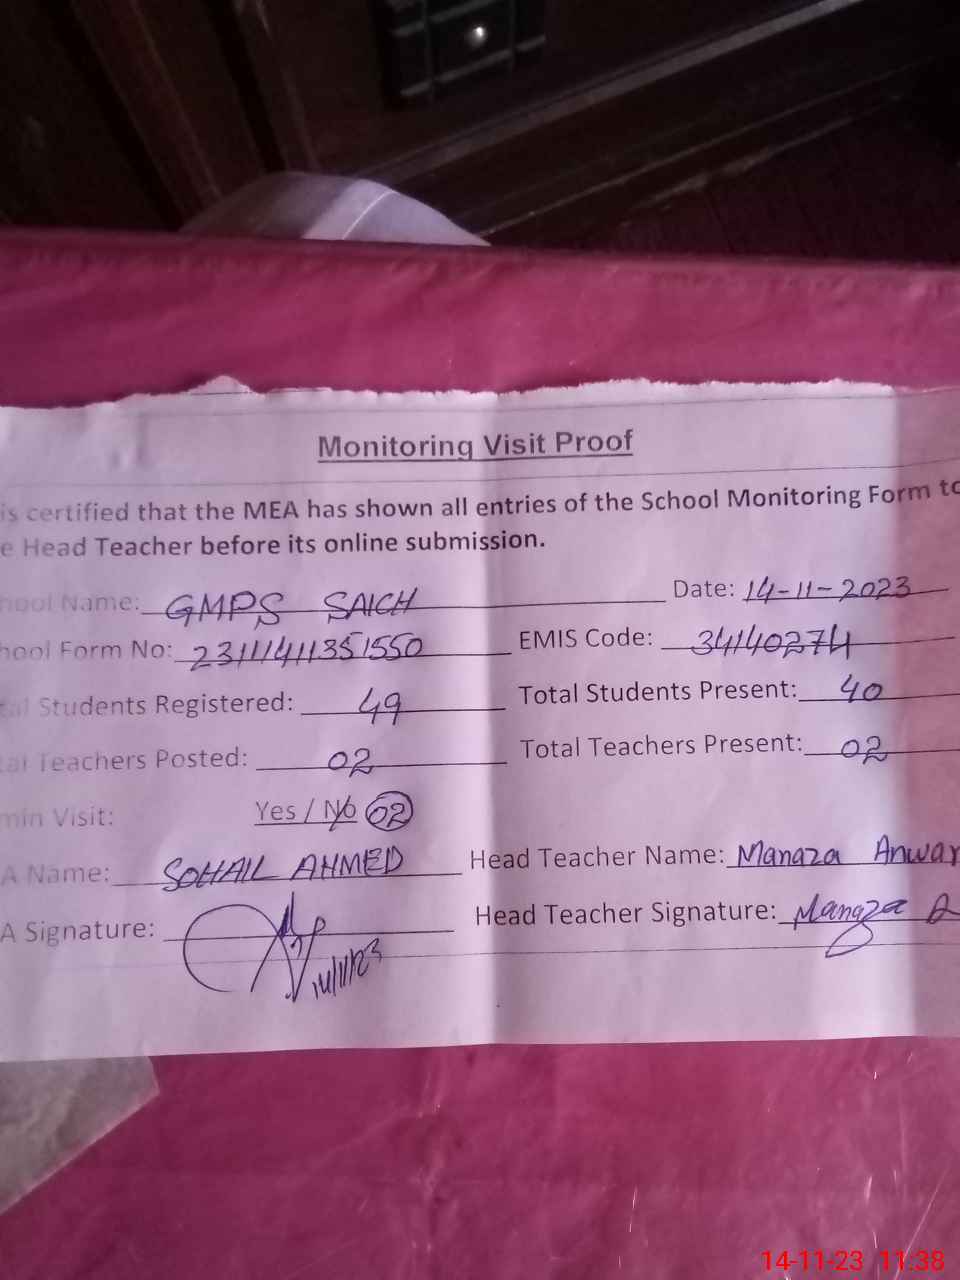 Monitoring Visit Proof
is certified that the MEA has shown all entries of the School Monitoring Form to
e Head Teacher before its online submission.
hool Name: GMPS SAICH Date: 14-11-2023
hool Form No: 23111411351550 EMIS Code: 34140274
tal Students Registered: 49 Total Students Present: 40
tal Teachers Posted: 02 Total Teachers Present: 02
min Visit: Yes / No 02
A Name: SOHAIL AHMED Head Teacher Name: Manaza Anwar
A Signature: 14/11/23 Head Teacher Signature: Manaza A
14-11-23 11:38